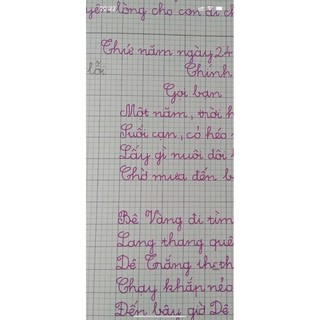 yên lòng cho con đi ch
Thứ năm ngày 24
lỗi
Chính
Gọi bạn
Một năm, trời h
Suối cạn, cỏ héo
Lấy gì nuôi đôi
Chờ mưa đến b
Bê Vàng đi tìm
Lang thang quê
Dê Trắng
Chạy khắp nẻo
Đến bây giờ Dê